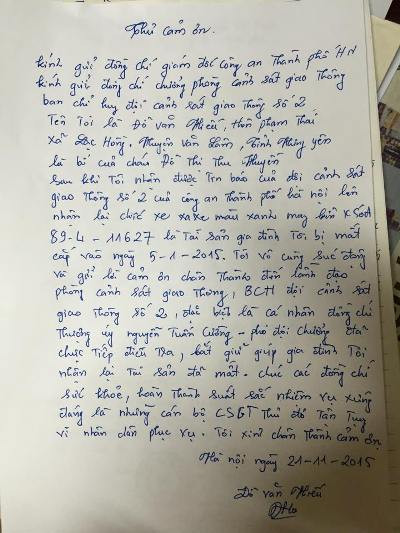 Thư cảm ơn.
kính gửi đồng chí giám đốc công an Thành phố HN
kính gửi đồng chí chưởng phòng cảnh sát giao Thông
ban chỉ huy đội cảnh sát giao Thông số 2
Tên Tôi là Đỗ văn Thiếu, thôn phạm Thái
xã Lạc Hồng. Huyện văn Lâm, Tỉnh Hưng yên
là bố của cháu Đỗ Thị Thu Huyền
sau khi Tôi nhận được Tin báo của đội cảnh sát
giao Thông số 2 của công an thành phố hà nội lên
nhận lại chiếc xe màu xanh mang biển K Soát
89-4-11627 là Tài sản gia đình Tôi bị mất
cắp vào ngày 5-1-2015. Tôi vô cùng xúc động
và gởi lời cảm ơn chân Thành đến lãnh đạo
phòng cảnh sát giao Thông, BCH đội cảnh sát
giao Thông số 2, đặc biệt là cá nhân đồng chí
Thượng úy nguyễn Tuấn Cường - phó đội chưởng đã
chực Tiếp điều Tra, bắt giữ giúp gia đình Tôi
nhận lại Tài sản đã mất. chúc các đồng chí
sức khỏe, hoàn thành suất sắc nhiệm vụ xứng
đáng là những cán bộ CSGT Thủ đô Tận Tụy
vì nhân dân phục vụ. Tôi xin chân Thành cảm ơn
Hà nội ngày 21-11-2015
Đỗ văn Thiếu